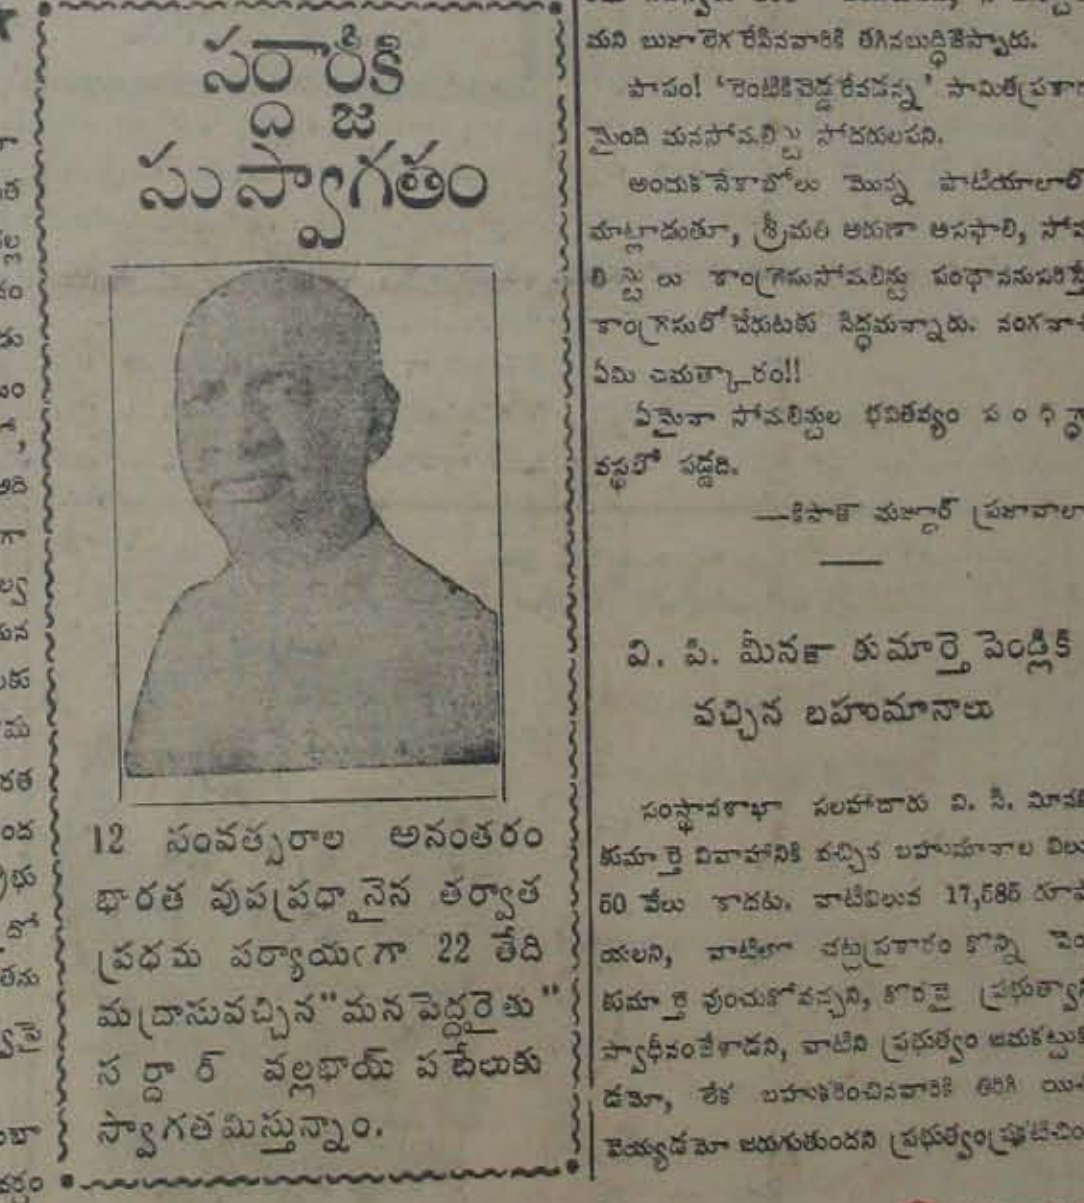 సర్దార్జీకి
సుస్వాగతం
12 సంవత్సరాల అనంతరం
భారత వుపప్రధానైన తర్వాత
ప్రధమ పర్యాయఁగా 22 తేది
మద్రాసువచ్చిన "మన పెద్దరైతు"
సర్దార్ వల్లభాయ్ పటేలుకు
స్వాగతమిస్తున్నాం.
మని లుజాలెగ రేపినవారికి తగినబుద్ధిజెప్పారు.
పాపం! 'రెంటికిచెడ్డ రేవడన్న' సామితప్రకార
మైంది మనసోషలిస్టు సోదరులపని.
అందుకనేకాబోలు మొన్న పాటియాలాలో
మాట్లాడుతూ, శ్రీమతి అరుణా ఆసఫాలి, సోష
లిస్టులు కాంగ్రెసుసోషలిస్టు పంధాననుసరిస్తే
కాంగ్రెసులో చేరుటకు సిద్ధమన్నారు.
ఏమి చమత్కారం!!
ఏమైనా సోషలిస్టుల భవితవ్యం సందిగ్ధా
వస్థలో పడ్డది.
—కిసాన్ మజ్దూర్ ప్రజావాలా
వి. పి. మీనన్ కుమార్తె పెండ్లికి
వచ్చిన బహుమానాలు
సంస్థానశాఖా సలహాదారు వి. పి. మీనన్
కుమార్తె వివాహానికి వచ్చిన బహుమానాల విలు
50 వేలు కాదట. వాటివిలువ 17,585 రూపా
యలని, వాటిలో చట్టప్రకారం కొన్ని
కుమార్తె వుంచుకోవచ్చని, కొన్నిపై ప్రభుత్వా
స్వాధీనంజేశాడని, వాటిని ప్రభుత్వం జమకట్టుక
డమో, లేక బహుకరించినవారికి తిరిగి యి
వెయ్యడమో జరుగుతుందని ప్రభుత్వంప్రకటించిం